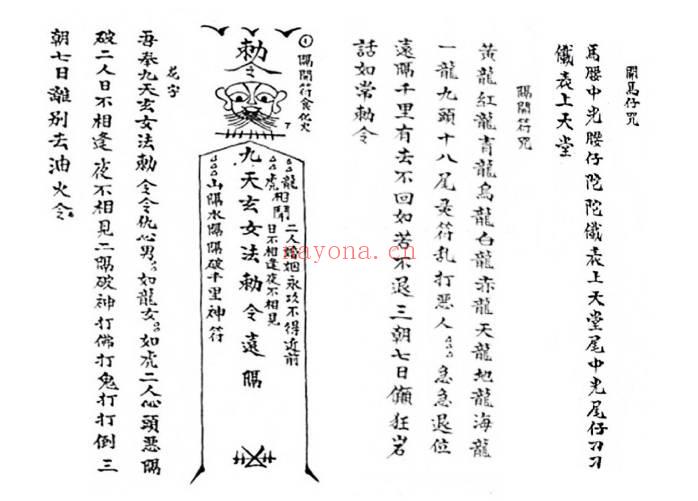 開馬仔咒
馬腰中光腰仔陀陀儎袁上天堂尾中光尾仔刃刃
儎袁上天堂
隔開符咒
黃龍紅龍青龍烏龍白龍赤龍天龍地龍海龍
一龍九頭十八尾 符乱打惡人 急急退位
遠隔千里有去不回如若不退三朝七日 狂岩
話如常勅令
① 隔開符食化火
7
勅令
九天玄女法勅令遠隔
龍 二人 烟永攻不得近前
虎相鬧 日不相逢夜不相見
山隔水隔隔破千里神符
花字
吾奉九天玄女法勅令令仇心男 如龍女 如虎二人心頭惡隔
破二人日不相逢夜不相見二隔破神打佛打鬼打打倒三
朝七日離別去油火令
nayona.cn